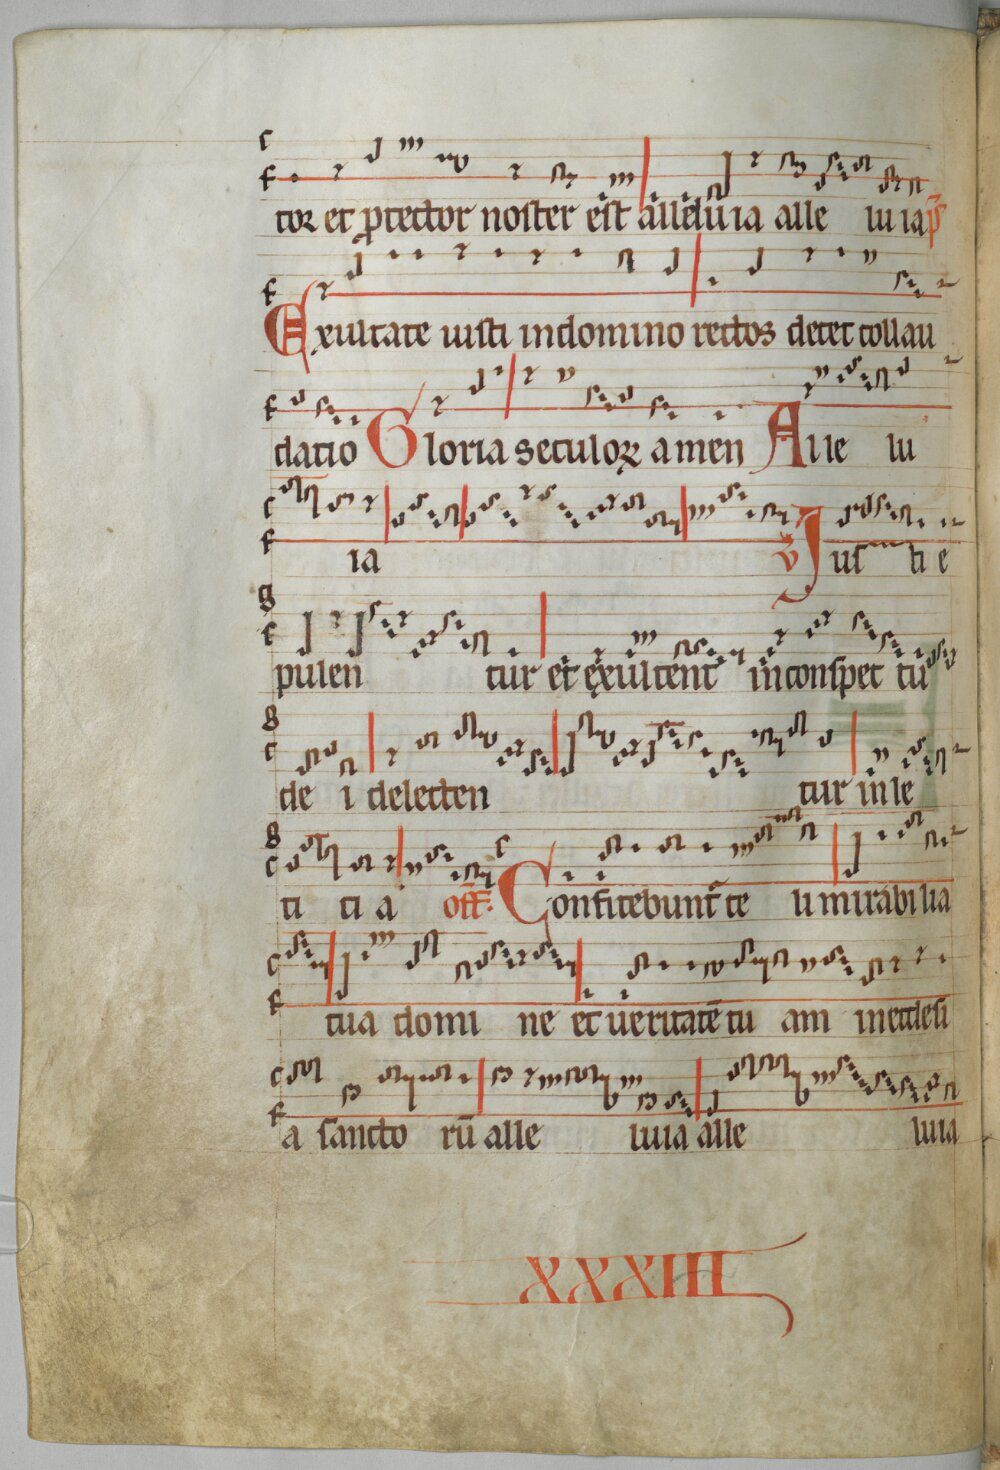 tor et protector noster est alleluia alle lu ia ps̄
Exultate iusti in domino rectos decet collau
datio Gloria seculoꝝ amen Alle lu
ia v̄ Jus ti e
pulen tur et exultent in conspec tu
de i delecten tur in le
ti ti a off̄. Confitebunt̄ te li mirabilia
tua domi ne et ueritatē tu am in ecclesi
a sancto rū alle luia alle luia
XXXIIII